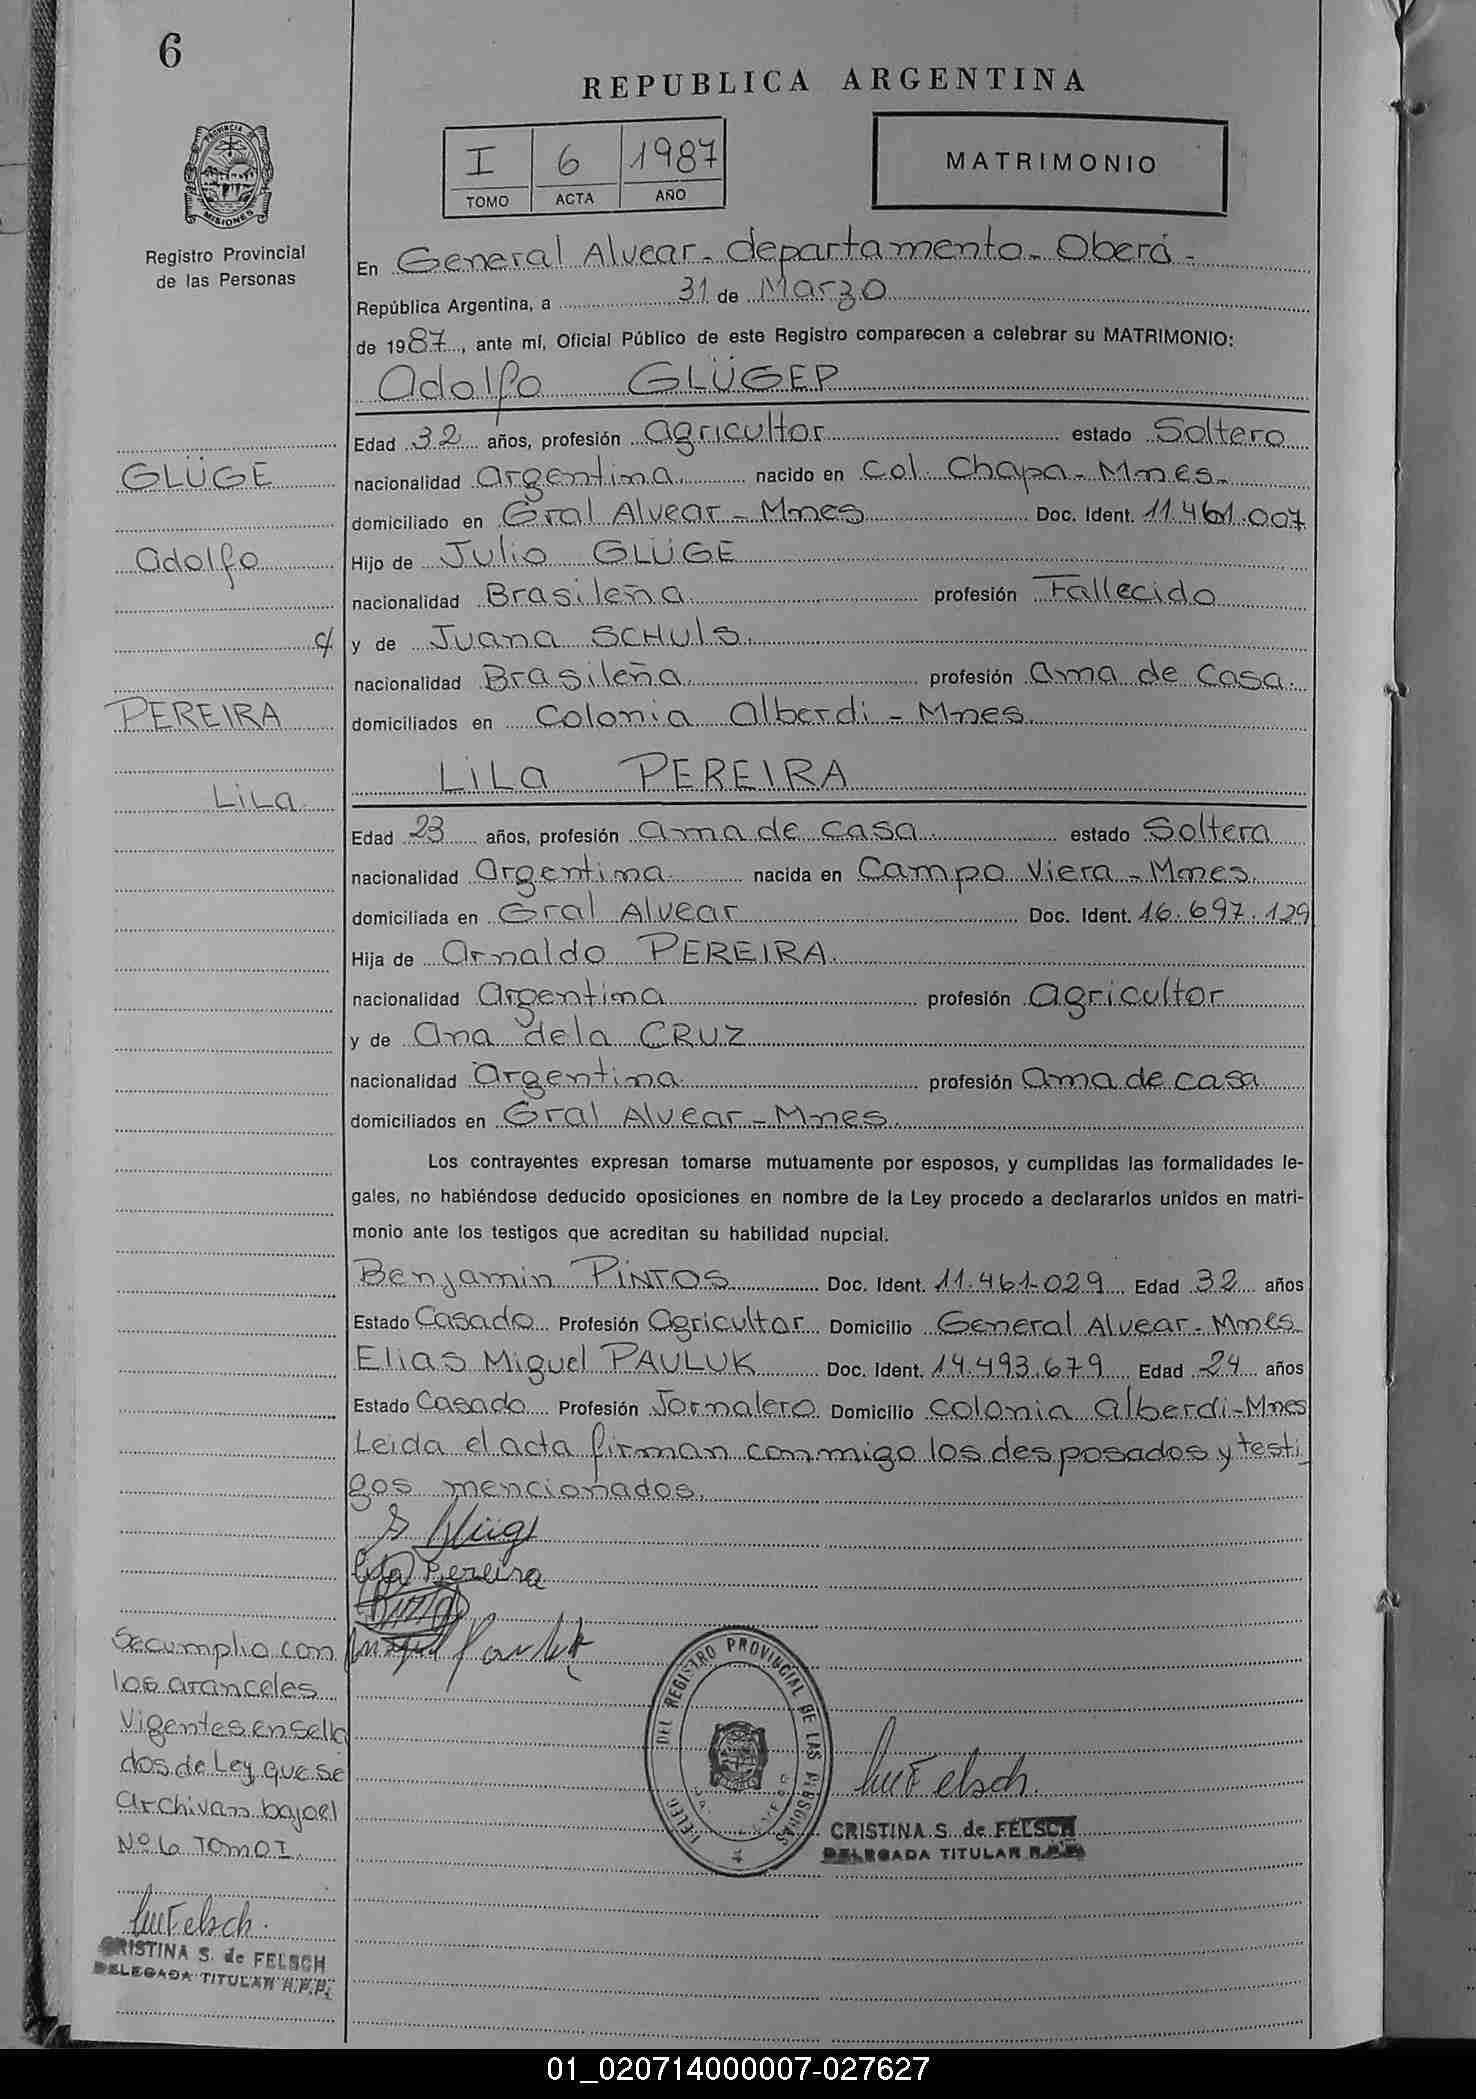 6
REPUBLICA ARGENTINA
PROVINCIA DE
MISIONES
Registro Provincial
de las Personas
I 6 1987
TOMO ACTA AÑO
MATRIMONIO
En General Alvear - departamento - Oberá -
República Argentina, a 31 de Marzo
de 1987, ante mí, Oficial Público de este Registro comparecen a celebrar su MATRIMONIO:
Adolfo GLÜGEP
Edad 32 años, profesión agricultor estado Soltero
GLÜGE
nacionalidad argentina. nacido en Col. Chapa - Mnes.
domiciliado en Gral Alvear - Mnes Doc. Ident. 11.461.007
Adolfo
Hijo de Julio GLÜGE
nacionalidad Brasileña profesión Fallecido
c/
y de Juana SCHULS.
nacionalidad Brasileña profesión ama de casa.
PEREIRA
domiciliados en Colonia Alberdi - Mnes.
Lila PEREIRA
Lila
Edad 23 años, profesión ama de casa. estado Soltera
nacionalidad Argentina nacida en Campo Viera - Mnes.
domiciliada en Gral Alvear Doc. Ident. 16.697.129
Hija de Arnaldo PEREIRA.
nacionalidad Argentina profesión agricultor
y de Ana dela CRUZ
nacionalidad Argentina profesión ama de casa
domiciliados en Gral Alvear - Mnes.
Los contrayentes expresan tomarse mutuamente por esposos, y cumplidas las formalidades le-
gales, no habiéndose deducido oposiciones en nombre de la Ley procedo a declararlos unidos en matri-
monio ante los testigos que acreditan su habilidad nupcial.
Benjamin PINTOS Doc. Ident. 11.461.029 Edad 32 años
Estado Casado Profesión Agricultor Domicilio General Alvear - Mnes
Elias Miguel PAULUK Doc. Ident. 14.493.679 Edad 24 años
Estado Casado Profesión Jornalero Domicilio Colonia Alberdi - Mnes
Leida el acta firman conmigo los desposados y testi_
gos mencionados.
Lila Pereira
Se cumplio con
los aranceles
Vigentes en Sella
dos de Ley que se
archivan bajo el
Nº 6 TOMO I.
DEL REGISTRO PROVINCIAL DE LAS PERSONAS
Felsch
CRISTINA S. de FELSCH
DELEGADA TITULAR R.P.P.
Felsch.
CRISTINA S. de FELSCH
DELEGADA TITULAR R.P.P.
01_020714000007-027627